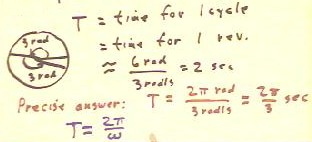 3 rad
3 rad
T = time for 1 cycle
= time for 1 rev.
≈ 6 rad / 3 rad/s = 2 sec
Precise answer: T = 2π rad / 3 rad/s = 2π / 3 sec
T = 2π / ω